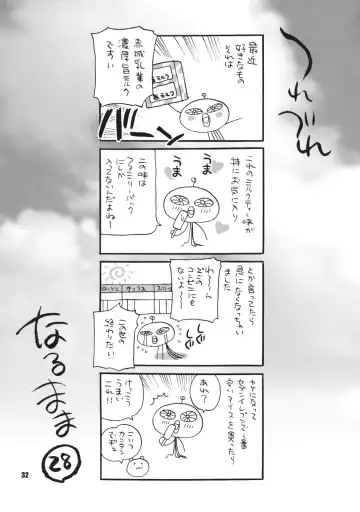 つれづれ
なるまま
28
最近
好きなもの
それは
赤城乳業の
濃厚旨ミルク
ですぃ
旨ミルク
バーン
これのミルクティー味が
特にお気に入り
うま
うま
この味は
ファミリーパック
にしか
入ってないんだよねー
とか言ってたら
急になくなっちゃい
ました
わーん
どこの
コンビニにも
ないよ〜
ローソン
サンクス
この世の
終わりだい!
ヤケになって
セブンイレブンで一番
安いアイスを買ったら
あれ?
けっこう
うまい
これ!!
こいつ
カンタン
でチュ
32